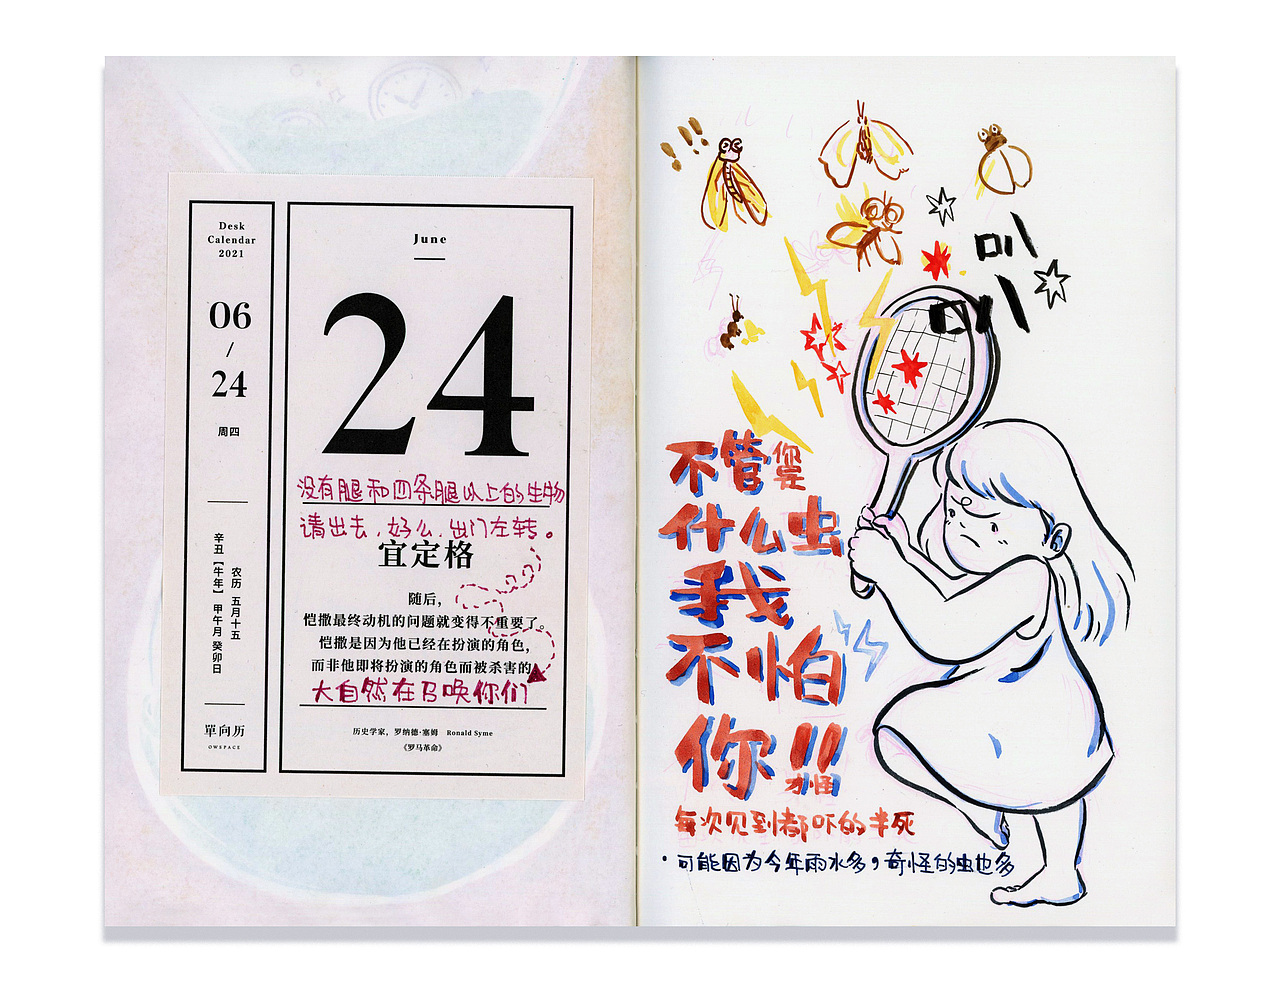 Desk
Calendar
2021
06
/
24
周四
农历 五月十五
辛丑【牛年】甲午月 癸卯日
單向历
OWSPACE
June
24
没有腿和四条腿以上的生物
请出去，好么，出门左转。
宜定格
随后，
恺撒最终动机的问题就变得不重要了。
恺撒是因为他已经在扮演的角色，
而非他即将扮演的角色而被杀害的
大自然在召唤你们
历史学家，罗纳德·塞姆 Ronald Syme
《罗马革命》
!!!
叭
叭
不管你是
什么虫
我
不怕
你!!
才怪
每次见到都吓的半死
·可能因为今年雨水多，奇怪的虫也多